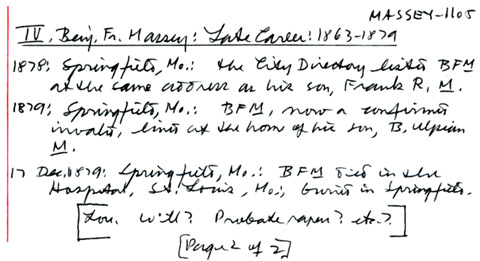 MASSEY-1105
IV. Benj. Fr. Massey: Late Career: 1863-1879
1878: Springfield, Mo.: the City Directory listed BFM
at the same address as his son, Frank R. M.
1879: Springfield, Mo.: BFM, now a confirmed
invalid, lives at the home of his son, B. Ulpian
M.
17 Dec. 1879: Springfield, Mo.: BFM died in the
Hospital, St. Louis, Mo.; buried in Springfield.
[ Will? Probate papers? etc.?]
[Page 2 of 2]